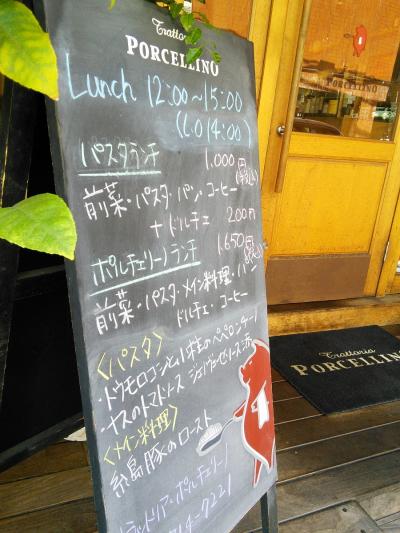 Trattoria
PORCELLINO
Lunch 12:00~15:00
(L.O 14:00)
パスタランチ 1,000円
(税込)
前菜・パスタ・パン・コーヒー
+ドルチェ 200円
ポルチェリーノランチ 1,650円
(税込)
前菜・パスタ・メイン料理・パン
ドルチェ・コーヒー
<パスタ>
・トウモロコシと小柱のペペロンチーノ
・ナスのトマトソース
<メイン料理>
糸島豚のロースト
トラットリア・ポルチェリーノ
Trattoria
PORCELLINO
PORCELLINO